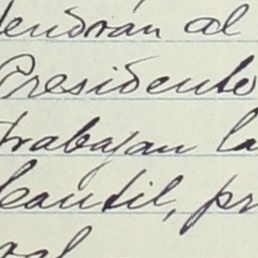 tendrán al
Presidente
trabajan la
Cantil, pr